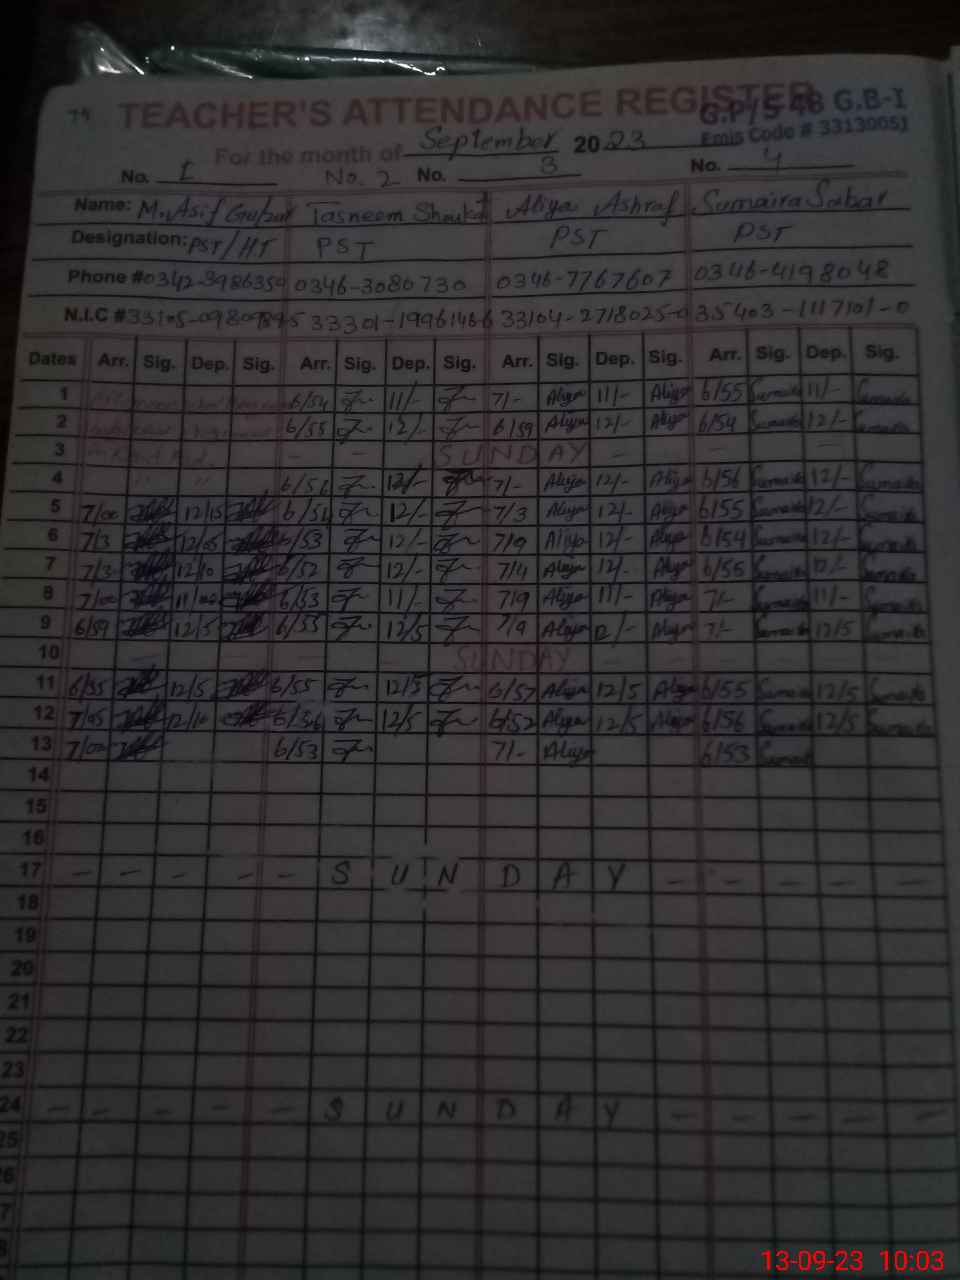 TEACHER'S ATTENDANCE REGISTER
G.P/S 48 G.B-I
Emis Code # 33130051
For the month of September 2023
No. 1 No. 2 No. 3 No. 4
Name: M. Asif Tasneem Shoukat Aliya Ashraf Sumaira Sabar
Designation: PST/HT PST PST PST
Phone #0342-3986350 0346-3080730 0346-7767607 0346-4198048
N.I.C # 35403-1117101-0
Dates Arr. Sig. Dep. Sig. Arr. Sig. Dep. Sig. Arr. Sig. Dep. Sig. Arr. Sig. Dep. Sig.
1 6/54 11/- 7/- Aliya 11/- Aliya 6/55 Sumaira 11/- Sumaira
2 6/55 12/- 6/59 Aliya 12/- Aliya 6/54 Sumaira 12/- Sumaira
3 - - SUNDAY - - - -
4 " " 6/56 12/- 7/- Aliya 12/- Aliya 6/56 Sumaira 12/- Sumaira
5 7/00 12/15 12/- 7/3 Aliya 12/- Aliya 6/55 Sumaira 12/- Sumaira
6 7/3 12/05 6/53 12/- 7/9 Aliya 12/- Aliya 6/54 Sumaira 12/- Sumaira
7 7/3 12/10 6/52 12/- 7/4 Aliya 12/- Aliya 6/55 Sumaira 12/- Sumaira
8 7/00 11/00 6/53 11/- 7/9 Aliya 11/- Aliya 7/- Sumaira 11/- Sumaira
9 6/59 12/5 6/55 12/5 7/9 Aliya 12/- Aliya 7/- Sumaira 12/5 Sumaira
10 SUNDAY
11 6/55 12/5 6/55 12/5 6/57 Aliya 12/5 Aliya 6/55 Sumaira 12/5 Sumaira
12 7/05 12/10 6/56 12/5 6/52 Aliya 12/5 Aliya 6/56 Sumaira 12/5 Sumaira
13 7/02 6/53 7/- Aliya 6/53 Sumaira
14
15
16
17 - - - - - S U N D A Y - - - - -
18
19
20
21
22
23
24 - - - - - S U N D A Y - - - - -
25
26
7
8
13-09-23 10:03